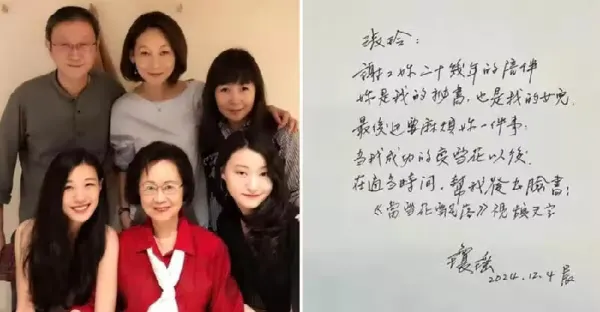 淑玲：
謝謝妳二十幾年的陪伴
妳是我的秘書，也是我的女兒
最後還要麻煩妳一件事，
當我成功的变雪花以後，
在適當時間，幫我發在臉書：
《當雪花飄落》視頻文字
瓊瑤
2024.12.4晨